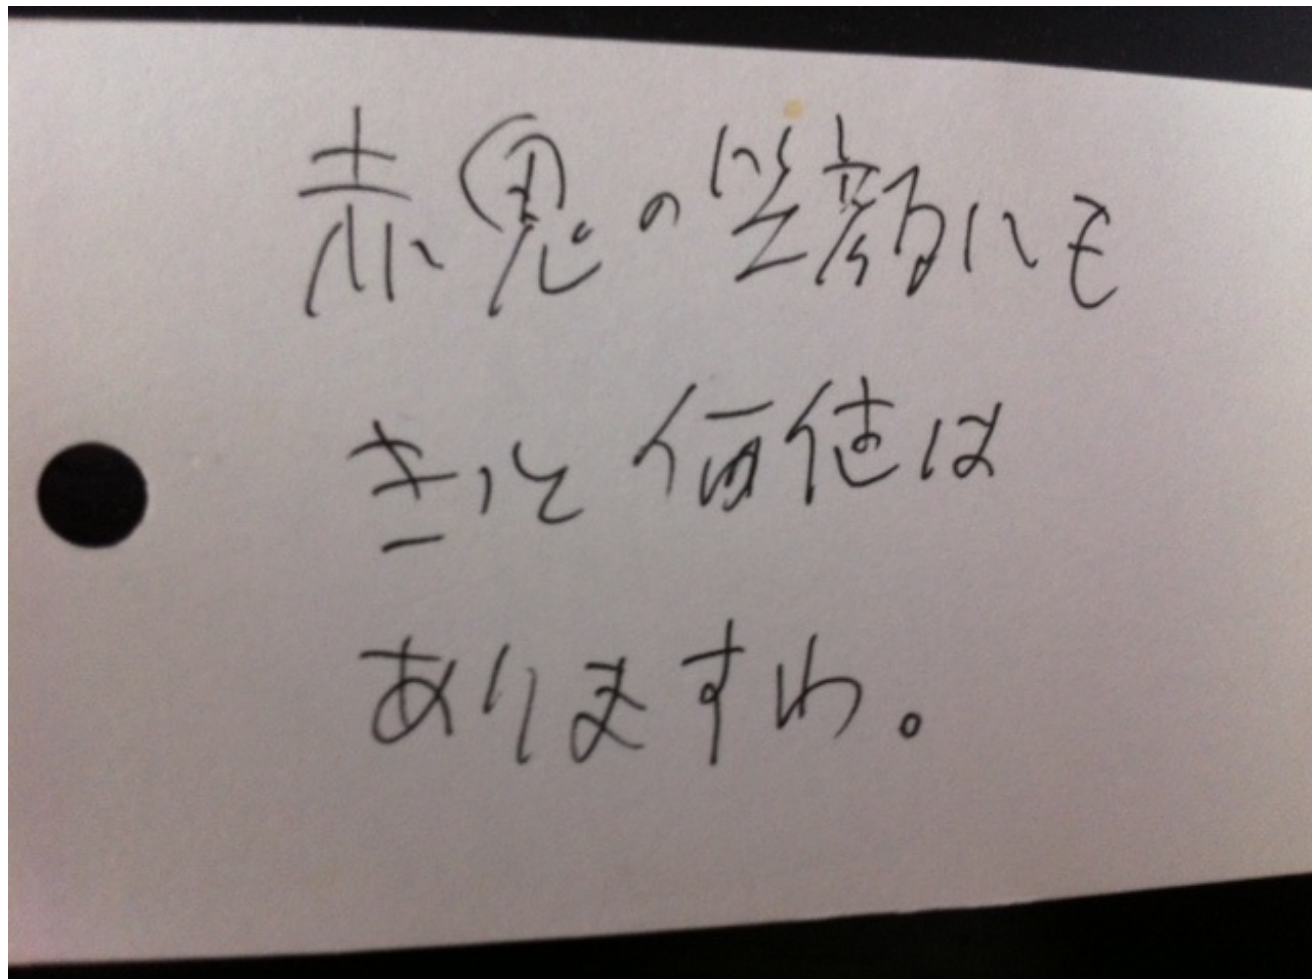 赤鬼の笑顔にも
きっと価値は
ありますわ。